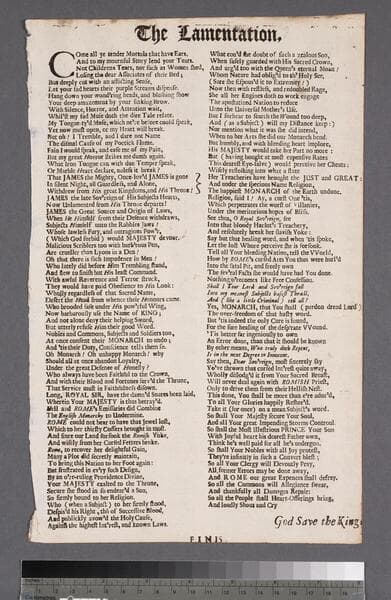 The Lamentation.
COme all ye tender Mortals that have Ears,
And to my mournful Story lend your Tears.
Not Childrens Tears, nor such as Women shed,
Losing the dear Associates of their Bed;
But deeply cut with an afflicting Sense,
Let your sad hearts their purple Streams dispense.
Hang down your wond'ring heads, and blushing show
Your deep amazement by your sinking Brow.
With Silence, Horror, and Attention wait,
Whil'st my sad Muse doth the dire Tale relate.
My Tongue did Muse, which ne're before could speak,
Yet now must open, or my Heart will break.
But oh! I Tremble, and I dare not Name
The dismal Cause of my Poetick Flame.
Fain I would speak, and ease me of my Pain,
But my great Monarc strikes me dumb again.
What Iron Tongue can with due Temper speak,
Or Marble Heart declare, unless it break!
That JAMES the Mighty, Once-lov'd JAMES is gone
In silent Night, all Guardless, and Alone;
Withdrew from his great Kingdoms, and His Throne!
JAMES the late Sov'reign of his Subjects Hearts,
Now Unlamented from His Throne departs!
JAMES the Great Source and Origin of Laws,
When He Himself from their Defence withdraws,
Subjects Himself unto the Rabble Jaws!
Whose lawless Fury, and outragious Pow'r,
(Which God forbid) would MAJESTY devour.
Malicious Scriblers too with barb'rous Pen,
Are crueller than Lyons in a Den.
Oh that there is such Impudence in Men!
Who lately did before Him Trembling stand,
And flew to finish his least Command.
With awful Reverence and Terror struck,
They would have paid Obedience to His Look:
Wholly regardless of that Sacred Name,
Desert the Head from whence their Honours came.
Who brooded safe under His pow'rful Wing,
Now barbarously use the Name of KING;
And not alone deny their helping Sword,
But utterly refuse Him their good Word.
Nobles and Commons, Subjects and Soldiers too,
At once consent their MONARCH to undo;
And 'tis their Duty, Conscience tells them so.
Oh Monarch! Oh unhappy Monarch! why
Should all at once abandon Loyalty,
Under the great Defense of Honesty!
Who always have been Faithful to the Crown,
And with their Blood and Fortunes serv'd the Throne,
That Service must in Faithfulness disown.
Long, ROYAL SIR, have the damn'd Snares been laid,
Wherein Your MAJESTY is thus betray'd:
Hell and ROME's Emissaries did Combine
The English Monarchy to Undermine.
ROME could not bear to have that Jewel lost,
Which to her thirsty Coffers brought in most.
And since our Land forsook the Romish Yoke,
And wisely from her Carnal Fetters broke.
Rome, to recover her delightful Gain,
Many a Plot did secretly maintain,
To bring this Nation to her Foot again:
But frustrated in ev'ry such Design,
By an o're-ruling Providence Divine,
Your MAJESTY exalted to the Throne,
Secure she stood in its endear'd a Son,
So firmly bound to her Religion.
Who (when a Subject) to her firmly stood,
Despis'd his Right, this of Successive Blood,
And publickly avow'd the Holy Cause,
Against the highest Int'rest, and known Laws.
What cou'd she doubt of such a zealous Son,
When safely guarded with His Sacred Crown,
And urg'd too with the Queen's eternal Moan!
Whom Nature had oblig'd to th' Holy Ser,
(Sure she Espous'd it to Extremity!)
Now then with restless, and redoubled Rage,
She all her Engines doth to work engage
The apostatized Nation to reduce
Unto the Universal Mother's Use.
But I forbear to search the Wound too deep,
And (as a Subject) will my Distance keep:
Nor mention what it was she did intend,
When to her Arts she did our Monarch bend.
But humbly, and with bleeding heart implore,
His MAJESTY would take her Part no more:
But (having bought at most expensive Rates
This dearest Eye-salve) would perceive her Cheats:
Wisely reflecting into what a state
Her Treacheries have brought the JUST and GREAT:
And under the specious Name Religion,
The happiest MONARCH of the Earth undone.
Religion, said I! Ay, a cust One 'tis,
Which perpetrates the worst of Villanies,
Under the meritorious hopes of Bliss.
See then, O Royal Sov'reign, see
Into that bloody Harlot's Treachery,
And resolutely break her slavish Yoke:
Say but that healing word, and when 'tis spoke,
Let the last Whore perceive she is forsook.
Tell all Your bleeding Nation, tell the VVorld,
How by ROME's cursed Arts You thus were hurl'd
Into the secret Pit, and freely own
The sinful Facts She would have had You done.
Nothing o'recomes like Free Confession.
Shall I Your Lord and Sov'reign fall
Into my meanest Subjects basest Thrall,
And (like a little Criminal) tell all?
Yes, MONARCH, that You shall (pardon dread Lord)
The over-freedom of that hasty word.
But 'tis indeed the only Cure is found,
For the sure healing of the desp'rate VVound.
'Tis better far ingeniously to own
An Error done, than that it should be known
By other means, Who truly doth Repent,
Is in the next Degree to Innocent.
Say then, Dear Sov'reign, most sincerely say
Ye've thrown that cursed Int'rest quite away,
Wholly dislodg'd it from Your Sacred Breast,
Will never deal again with ROMISH Priest,
Only to drive them from their Hellish Nest.
This done, You shall be more than e're ador'd,
To all Your Glories happily Restor'd;
Take it (for once) on a mean Subject's word.
So shall Your Majesty secure Your Soul,
And all Your great Impending Storms Controul.
So shall the Most Illustrious PRINCE Your Son
With Joyful heart his dearest Father own,
Think he's well paid for all he's undergon.
So shall Your Nobles with all Joy protest,
They're infinitely in such a Convert blest;
So all Your Clergy will Devoutly Pray,
All former Errors may be done away,
And ROME our great Expences shall defray.
So all the Commons will Allegiance swear,
And thankfully all Damages Repair:
So all the People shall Heart-Offerings bring,
And loudly Shout and Cry
God Save the King
FINIS.